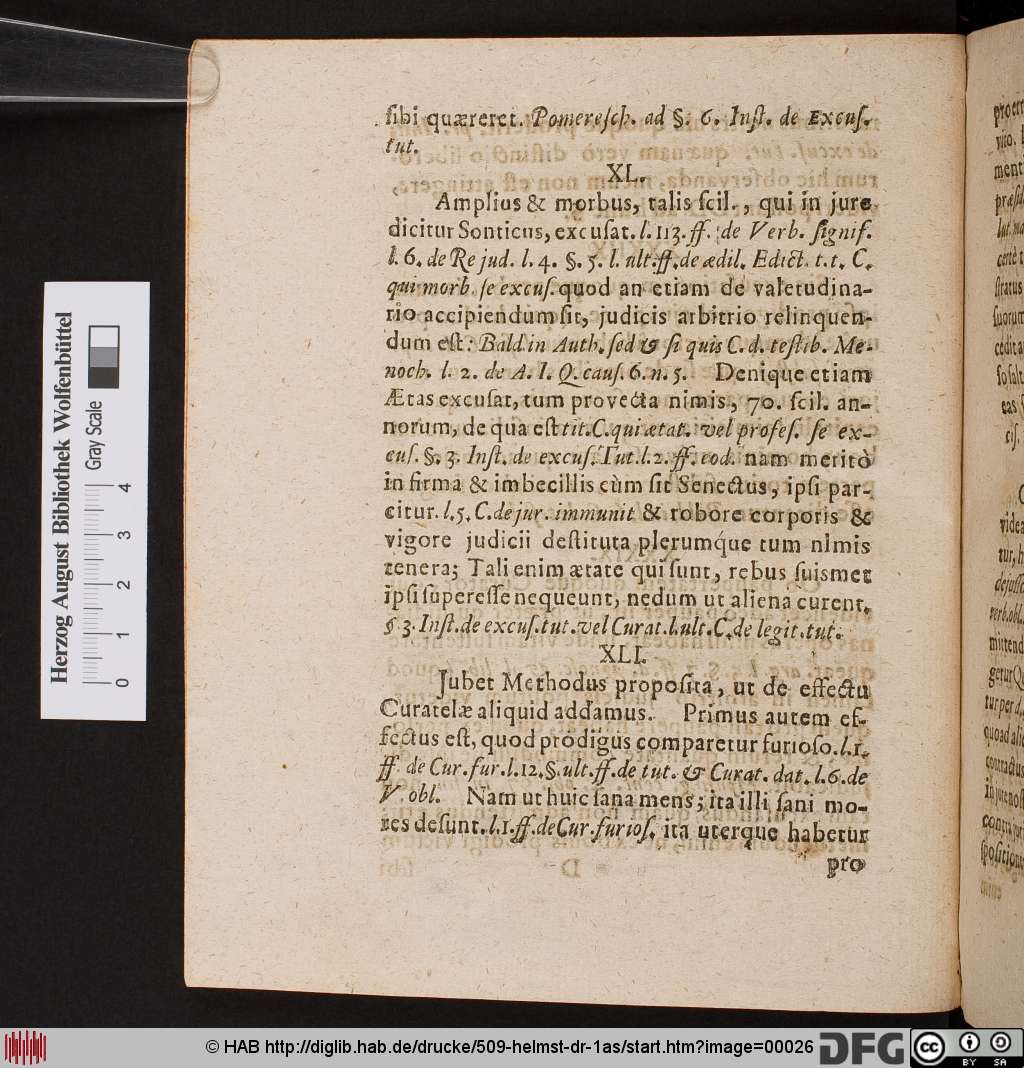 sibi quæreret. Pomeresch. ad §. 6. Inst. de Excus.
tut.
XL.
Amplius & morbus, talis scil., qui in jure
dicitur Sonticus, excusat. l. 113. ff. de Verb. signif.
l. 6. de Re jud. l. 4. §. 5. l. ult. ff. de ædil. Edict. t. t. C.
qui morb. se excus. quod an etiam de valetudina-
rio accipiendum sit, judicis arbitrio relinquen-
dum est: Bald. in Auth. sed & si quis C. d. testib. Me-
noch. l. 2. de A. I. Q. caus. 6. n. 5. Denique etiam
Ætas excusat, tum provecta nimis, 70. scil. an-
norum, de qua est tit. C. qui ætat. vel profes. se ex-
cus. §. 3. Inst. de excus. Tut. l. 2. ff. eod. nam meritò
in firma & imbecillis cùm sit Senectus, ipsi par-
citur. l. 5. C. de jur. immunit & robore corporis &
vigore judicii destituta plerumq́ue tum nimis
tenera; Tali enim ætate qui sunt, rebus suismet
ipsi superesse nequeunt, nedum ut aliena curent.
§ 3. Inst. de excus. tut. vel Curat. l. ult. C. de legit. tut.
XLI.
Jubet Methodus proposita, ut de effectu
Curatelæ aliquid addamus. Primus autem ef-
fectus est, quod prodigus comparetur furioso. l. 1.
ff. de Cur. fur. l. 12. §. ult. ff. de tut. & Curat. dat. l. 6. de
V. obl. Nam ut huic sana mens; ita illi sani mo-
res desunt. l. 1. ff. de Cur. furios. ita uterque habetur
pro
Herzog August Bibliothek Wolfenbüttel
Gray Scale
0 1 2 3 4
© HAB http://diglib.hab.de/drucke/509-helmst-dr-1as/start.htm?image=00026
DFG
cc
BY SA